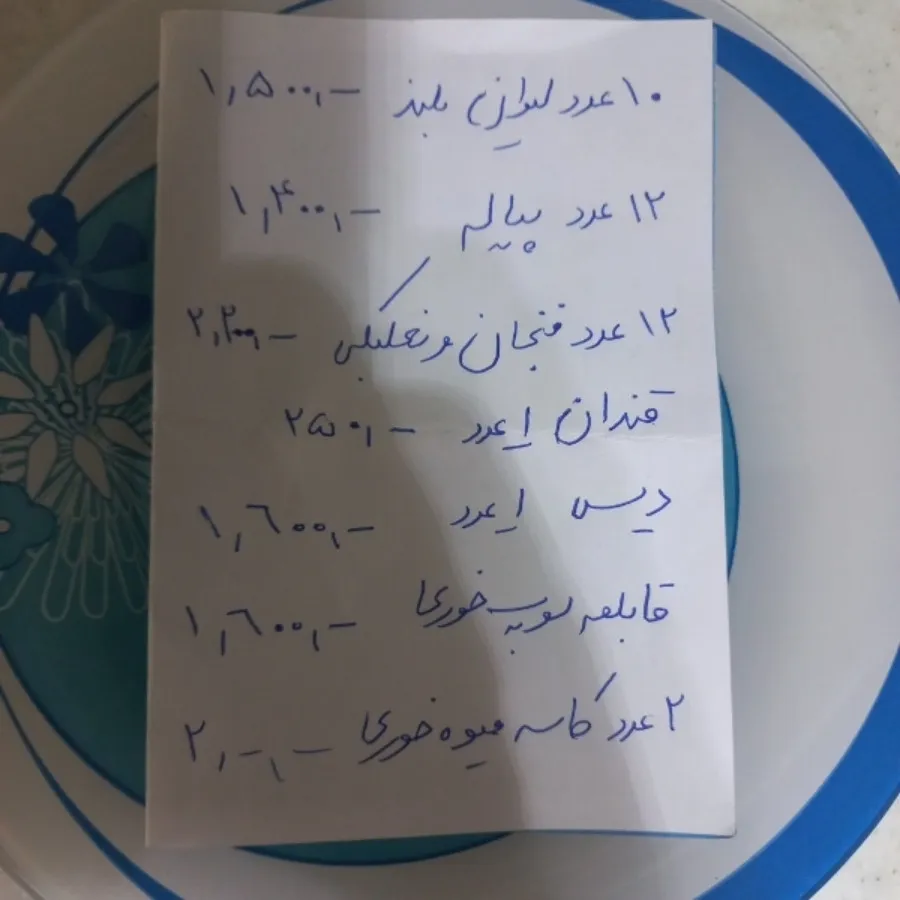 ۱۰ عدد لیوان بلند ۱,۵۰۰,-
۱۲ عدد پیاله ۱,۴۰۰,-
۱۲ عدد فنجان و نعلبکی ۲,۲۰۰,-
قندان ۱ عدد ۲۵۰,-
دیس ۱ عدد ۱,۶۰۰,-
قابلمه سوپ خوری ۱,۶۰۰,-
۲ عدد کاسه میوه خوری ۲,-,-